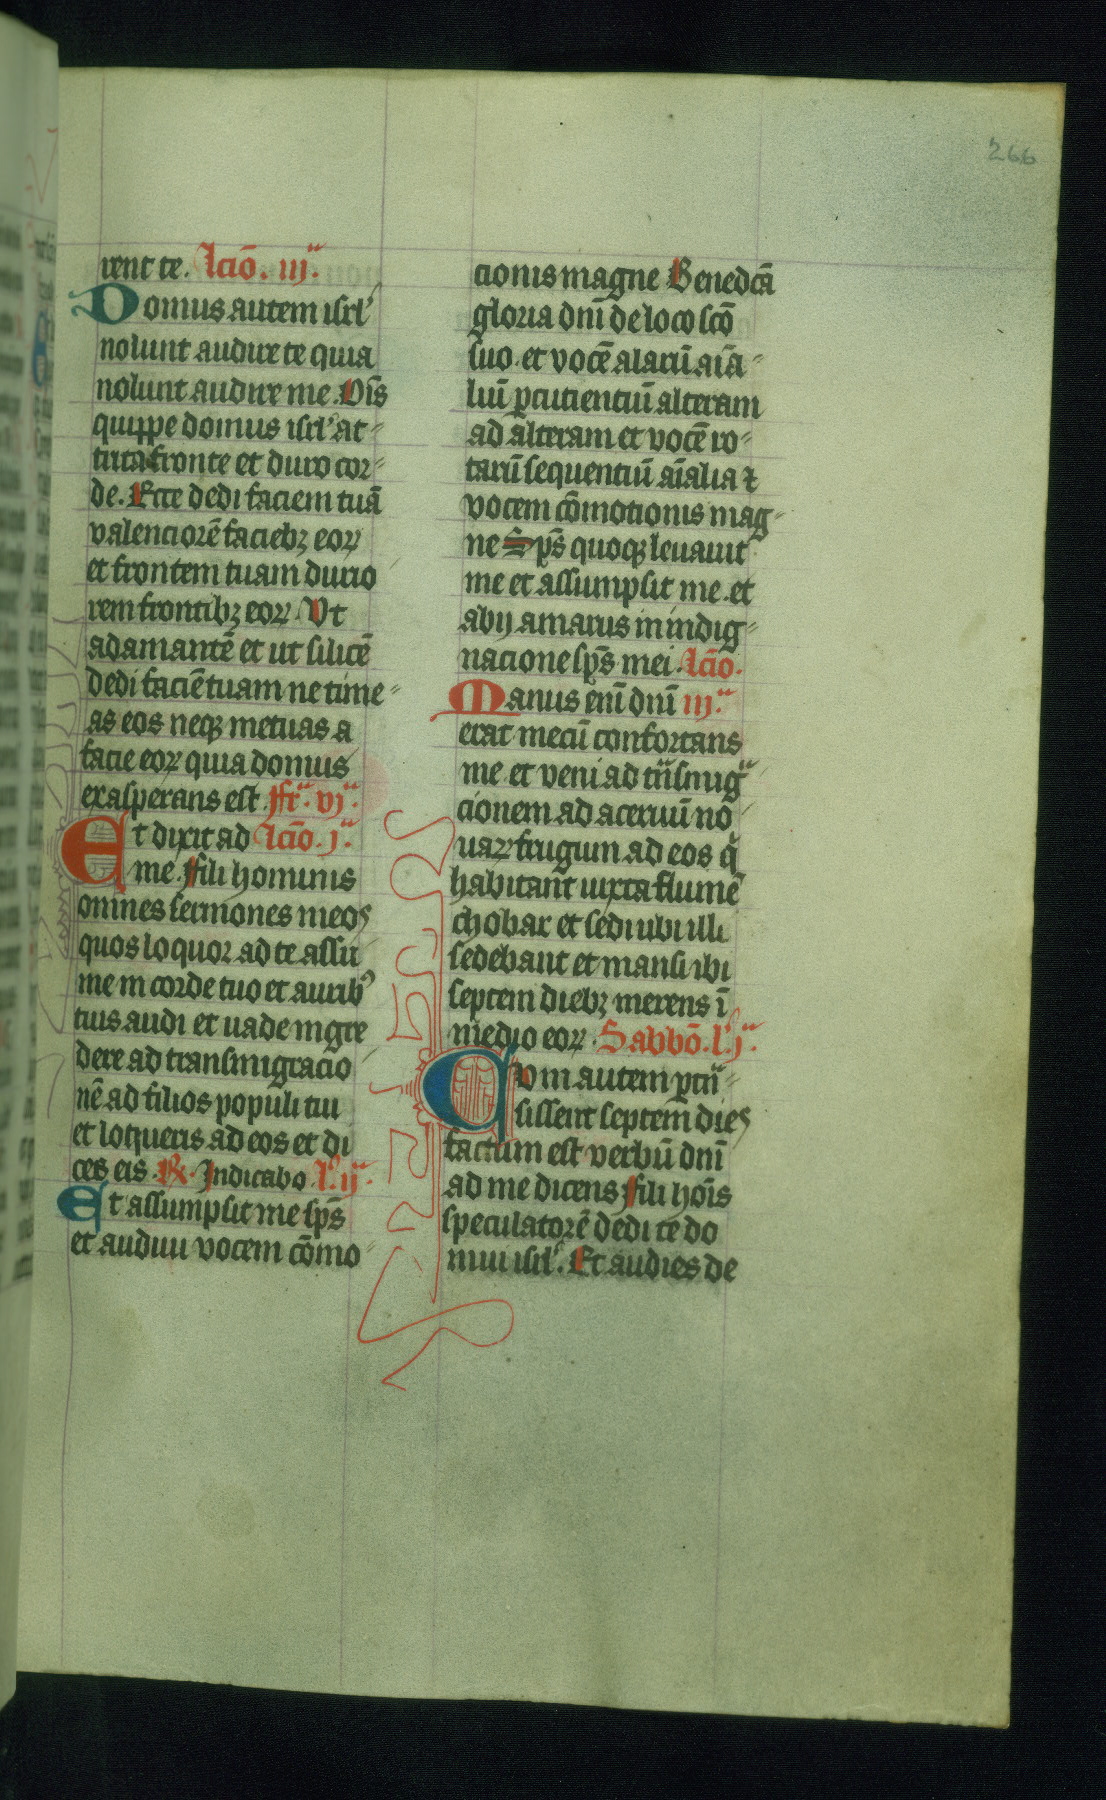 266
rent te. Lcio̅. iij͛.
Domus autem isrl'
nolunt audire te quia
nolunt audire me. Oi̅s
quippe domus isrl' at-
trita fronte et duro cor-
de. Ecce dedi faciem tua̅
valenciore̅ faciebꝫ eoꝝ
et frontem tuam durio
rem frontibꝫ eoꝝ. Vt
adamante̅ et ut silice̅
dedi facie̅ tuam ne time-
as eos neqꝫ metuas a
facie eoꝝ quia domus
exasperans est. Fr͛. vj͛.
Et dixit ad Lcio̅. j͛.
me. Fili hominis
omnes sermones meos
quos loquor ad te assu
me in corde tuo et auribꝰ
tuis audi et uade ingre
dere ad transmigracio
ne̅ ad filios populi tui
et loqueris ad eos et di
ces eis. R. Indicabo. l'. ij͛.
Et assumpsit me sp̅s
et audiui vocem co̅mo-
cionis magne Benedca̅
gloria dni̅ de loco sco̅
suo. et voce̅ alaru̅ ai̅a-
liu̅ ꝑcutientiu̅ alteram
ad alteram et voce̅ ro-
taru̅ sequentiu̅ ai̅alia ⁊
vocem co̅motionis mag-
ne Sp̅s quoqꝫ leuauit
me et assumpsit me. et
abij amarus in indig-
nacione sp̅s mei. Lcio̅.
Manus eni̅ dni̅ iij͛.
erat mecu̅ confortans
me. et veni ad tn̅smig͛
cionem ad aceruu̅ no
uaꝝ frugum ad eos q̅
habitant iuxta flume̅
chobar et sedi ubi illi
sedebant et mansi ibi
septem diebꝫ merens i̅
medio eoꝝ. Sabbo̅. l'. j͛.
Cvm autem ꝑtn͛-
sissent septem dies
factum est verbu̅ dni̅
ad me dicens Fili ho̅is
speculatore̅ dedi te do
mui isrl'. Et audies de